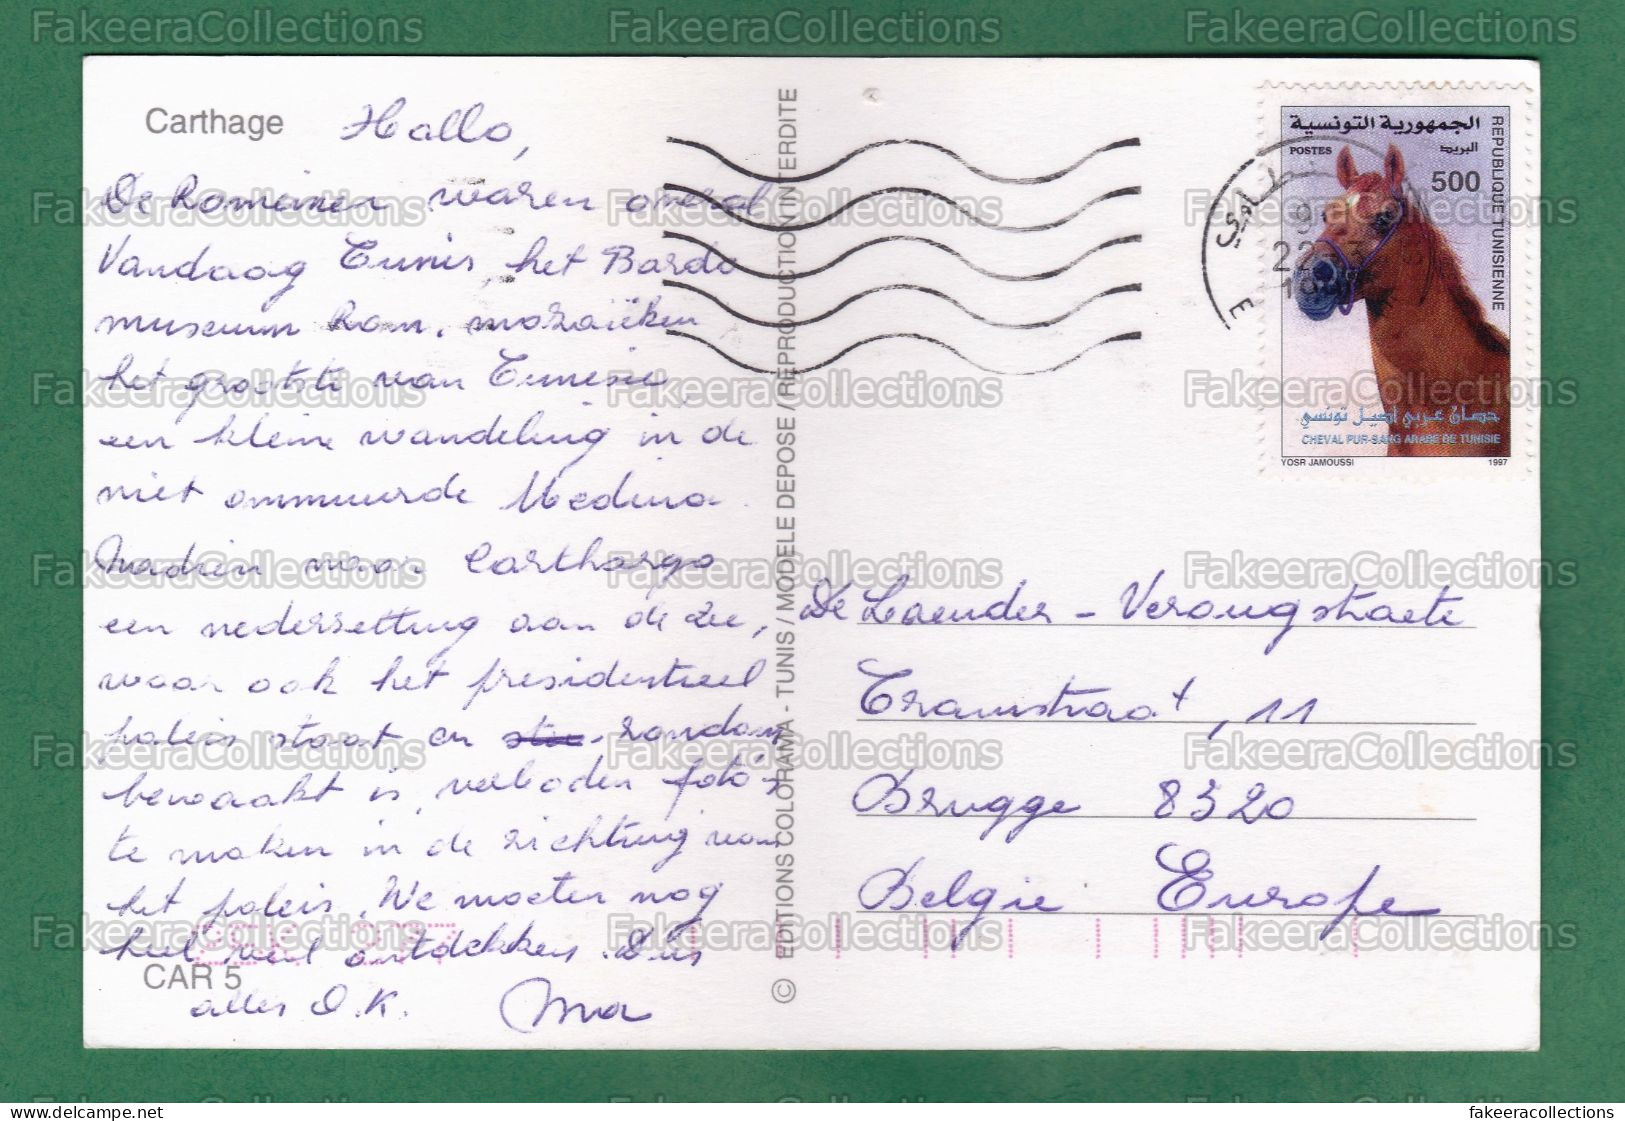 Carthage
Hallo,
De Romeinen waren overal
Vandaag Tunis, het Bardo
museum Rom. mozaïeken
het grootste van Tunesie,
een kleine wandeling in de
niet ommuurde Medina.
Nadien naar Carthargo
een nedersetting aan de zee,
waar ook het presidentieel
paleis staat en rondom
bewaakt is, verboden foto's
te maken in de richting van
het paleis. We moeten nog
heel veel ontdekken. Dus
alles O.K. Ma
CAR 5
© EDITIONS COLORAMA - TUNIS / MODELE DEPOSE / REPRODUCTION INTERDITE
الجمهورية التونسية
POSTES البريد
500
REPUBLIQUE TUNISIENNE
حصان عربي أصيل تونسي
CHEVAL PUR-SANG ARABE DE TUNISIE
YOSR JAMOUSSI 1997
De Laender - Verougstraete
Tramstraat, 11
Brugge 8320
Belgie Europe
FakeeraCollections
fakeeracollections